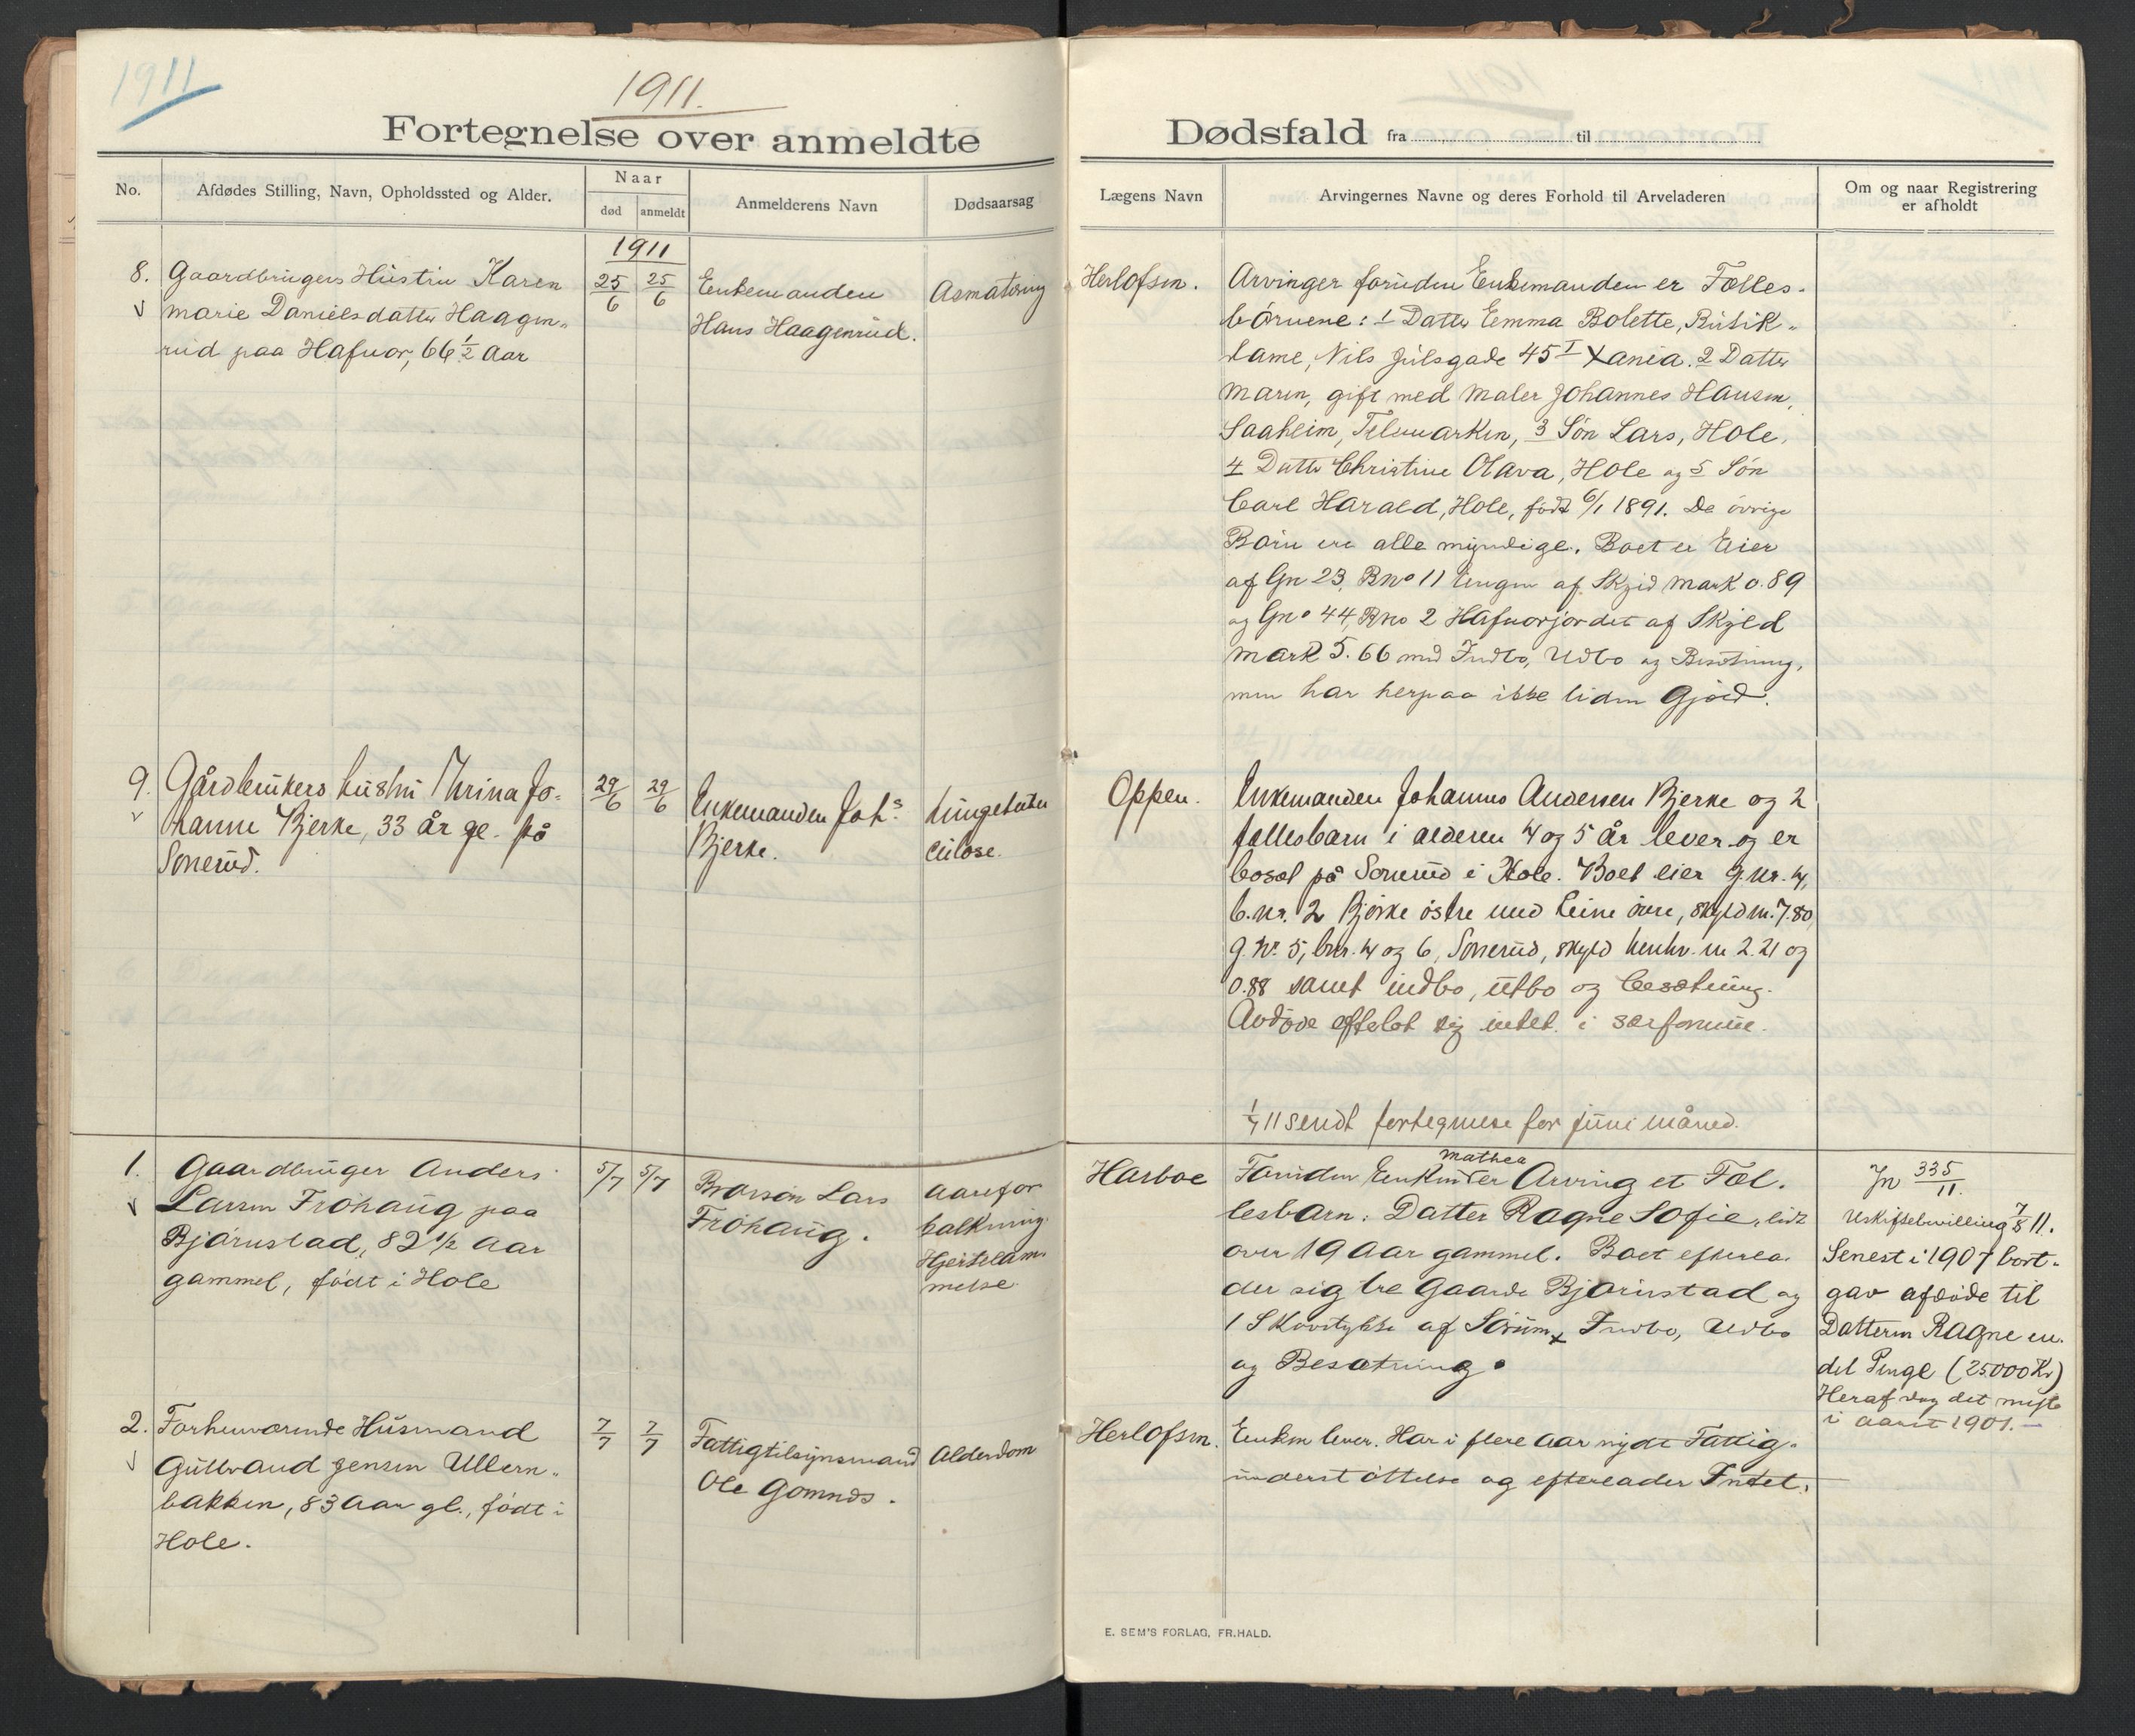 1911
1911.
Fortegnelse over anmeldte
Dødsfald fra til
No.
Afdødes Stilling, Navn, Opholdssted og Alder.
Naar
død
anmeldt
Anmelderens Navn
Dødsaarsag
Lægens Navn
Arvingernes Navne og deres Forhold til Arveladeren
Om og naar Registrering
er afholdt
1911
8. Gaardbrugers Hustru Karen
Marie Danielsdatter Haagen-
rud paa Hafnor, 66 1/2 Aar
25/6 25/6
Enkemanden
Hans Haagenrud.
Herlofsen.
Arvinger foruden Enkemanden er Fælles-
børnene: 1 Datter Emma Bolette, Butik-
dame, Nils Julsgade 45 I Xania. 2 Datter
Maren, gift med Maler Johannes Hansen,
Saaheim, Telemarken, 3 Søn Lars, Hole,
4 Datter Christine Olava, Hole og 5 Søn
Carl Harald, Hole, født 6/1 1891. De øvrige
Børn ere alle myndige. Boet er Eier
af Gn 23, Bno 11 Engen af Skyld Mark 0.89
og Gno 44, Bno 2 Hafnorjordet af Skyld
Mark 5.66 med Indbo, Udbo og Besætning,
men har herpaa ikke liden Gjæld.
9. Gårdbrukers hustru Thrina Jo-
hanne Bjerke, 33 år gl. på
Sonerud.
29/6 29/6
Enkemanden Johs
Bjerke.
Lungetuber
culose.
Oppen.
Enkemanden Johannes Andersen Bjerke og 2
fællesbarn i alderen 4 og 5 år lever og er
bosat på Sonerud i Hole. Boet eier g.nr. 4,
b.nr. 2 Bjerke østre med Leine øvre, skyld m. 7.80,
g.nr. 5, bnr. 4 og 6, Sonerud, skyld henhv. m 2.21 og
0.88 samt indbo, utbo og besætning.
Avdøde efterlot sig intet i særformue.
1/7 11 sendt fortegnelse for juni måned.
1. Gaardbruger Anders
Larsen Frøhaug paa
Bjørnstad, 82 1/2 Aar
gammel, født i Hole
5/7 5/7
Brorsøn Lars
Frøhaug.
Aarefor
kalkning
Hjertelam-
melse.
Harboe
Mathea
Foruden Enken er Arving et Fæl-
lesbarn: Datter Ragne Sofie, lidt
over 19 Aar gammel. Boet efterla-
der sig tre Gaarde Bjørnstad og
1 Skovstykke af Sørum x Indbo, Udbo
og Besætning.
Jn 335/11.
Uskiftebevilling 7/8 11.
Senest i 1907 bort-
gav afdøde til
Datteren Ragne en
del Penge (25000 Kr)
Heraf dog det meste
i Aaret 1901.
2. Forhenværende Husmand
Gulbrand Jensen Ullern-
bakken, 83 Aar gl., født i
Hole.
7/7 7/7
Fattigtilsynsmand
Ole Gomnæs.
Alderdom
Herlofsen.
Enken lever. Har i flere Aar nydt Fattig-
understøttelse og efterlader Intet.
E. SEM'S FORLAG, FR.HALD.